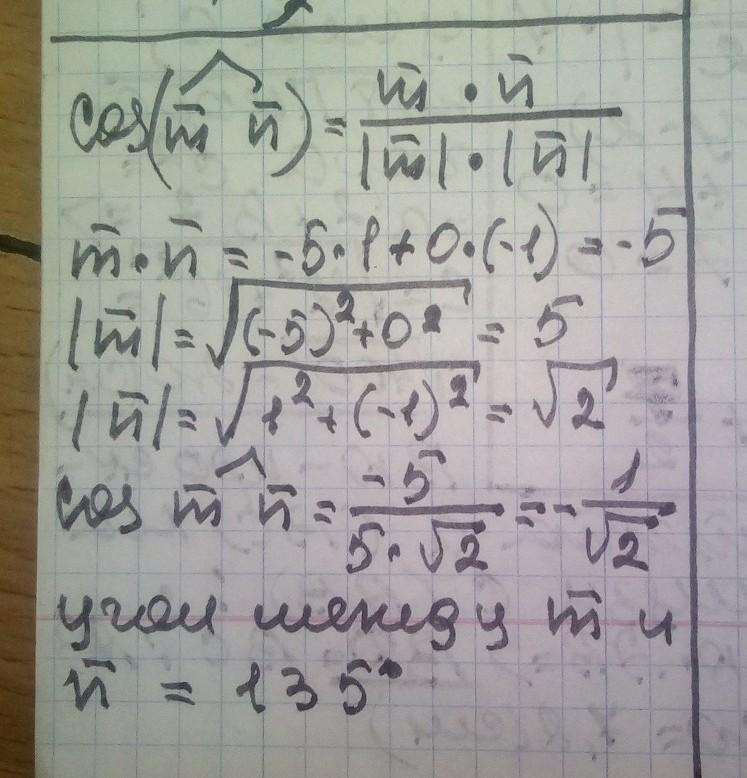 cos(m̄ ^ n̄) = (m̄ · n̄) / (|m̄| · |n̄|)
m̄ · n̄ = -5 · 1 + 0 · (-1) = -5
|m̄| = √((-5)² + 0²) = 5
|n̄| = √(1² + (-1)²) = √2
cos m̄ ^ n̄ = -5 / (5 · √2) = - 1 / √2
угол между m̄ и
n̄ = 135°